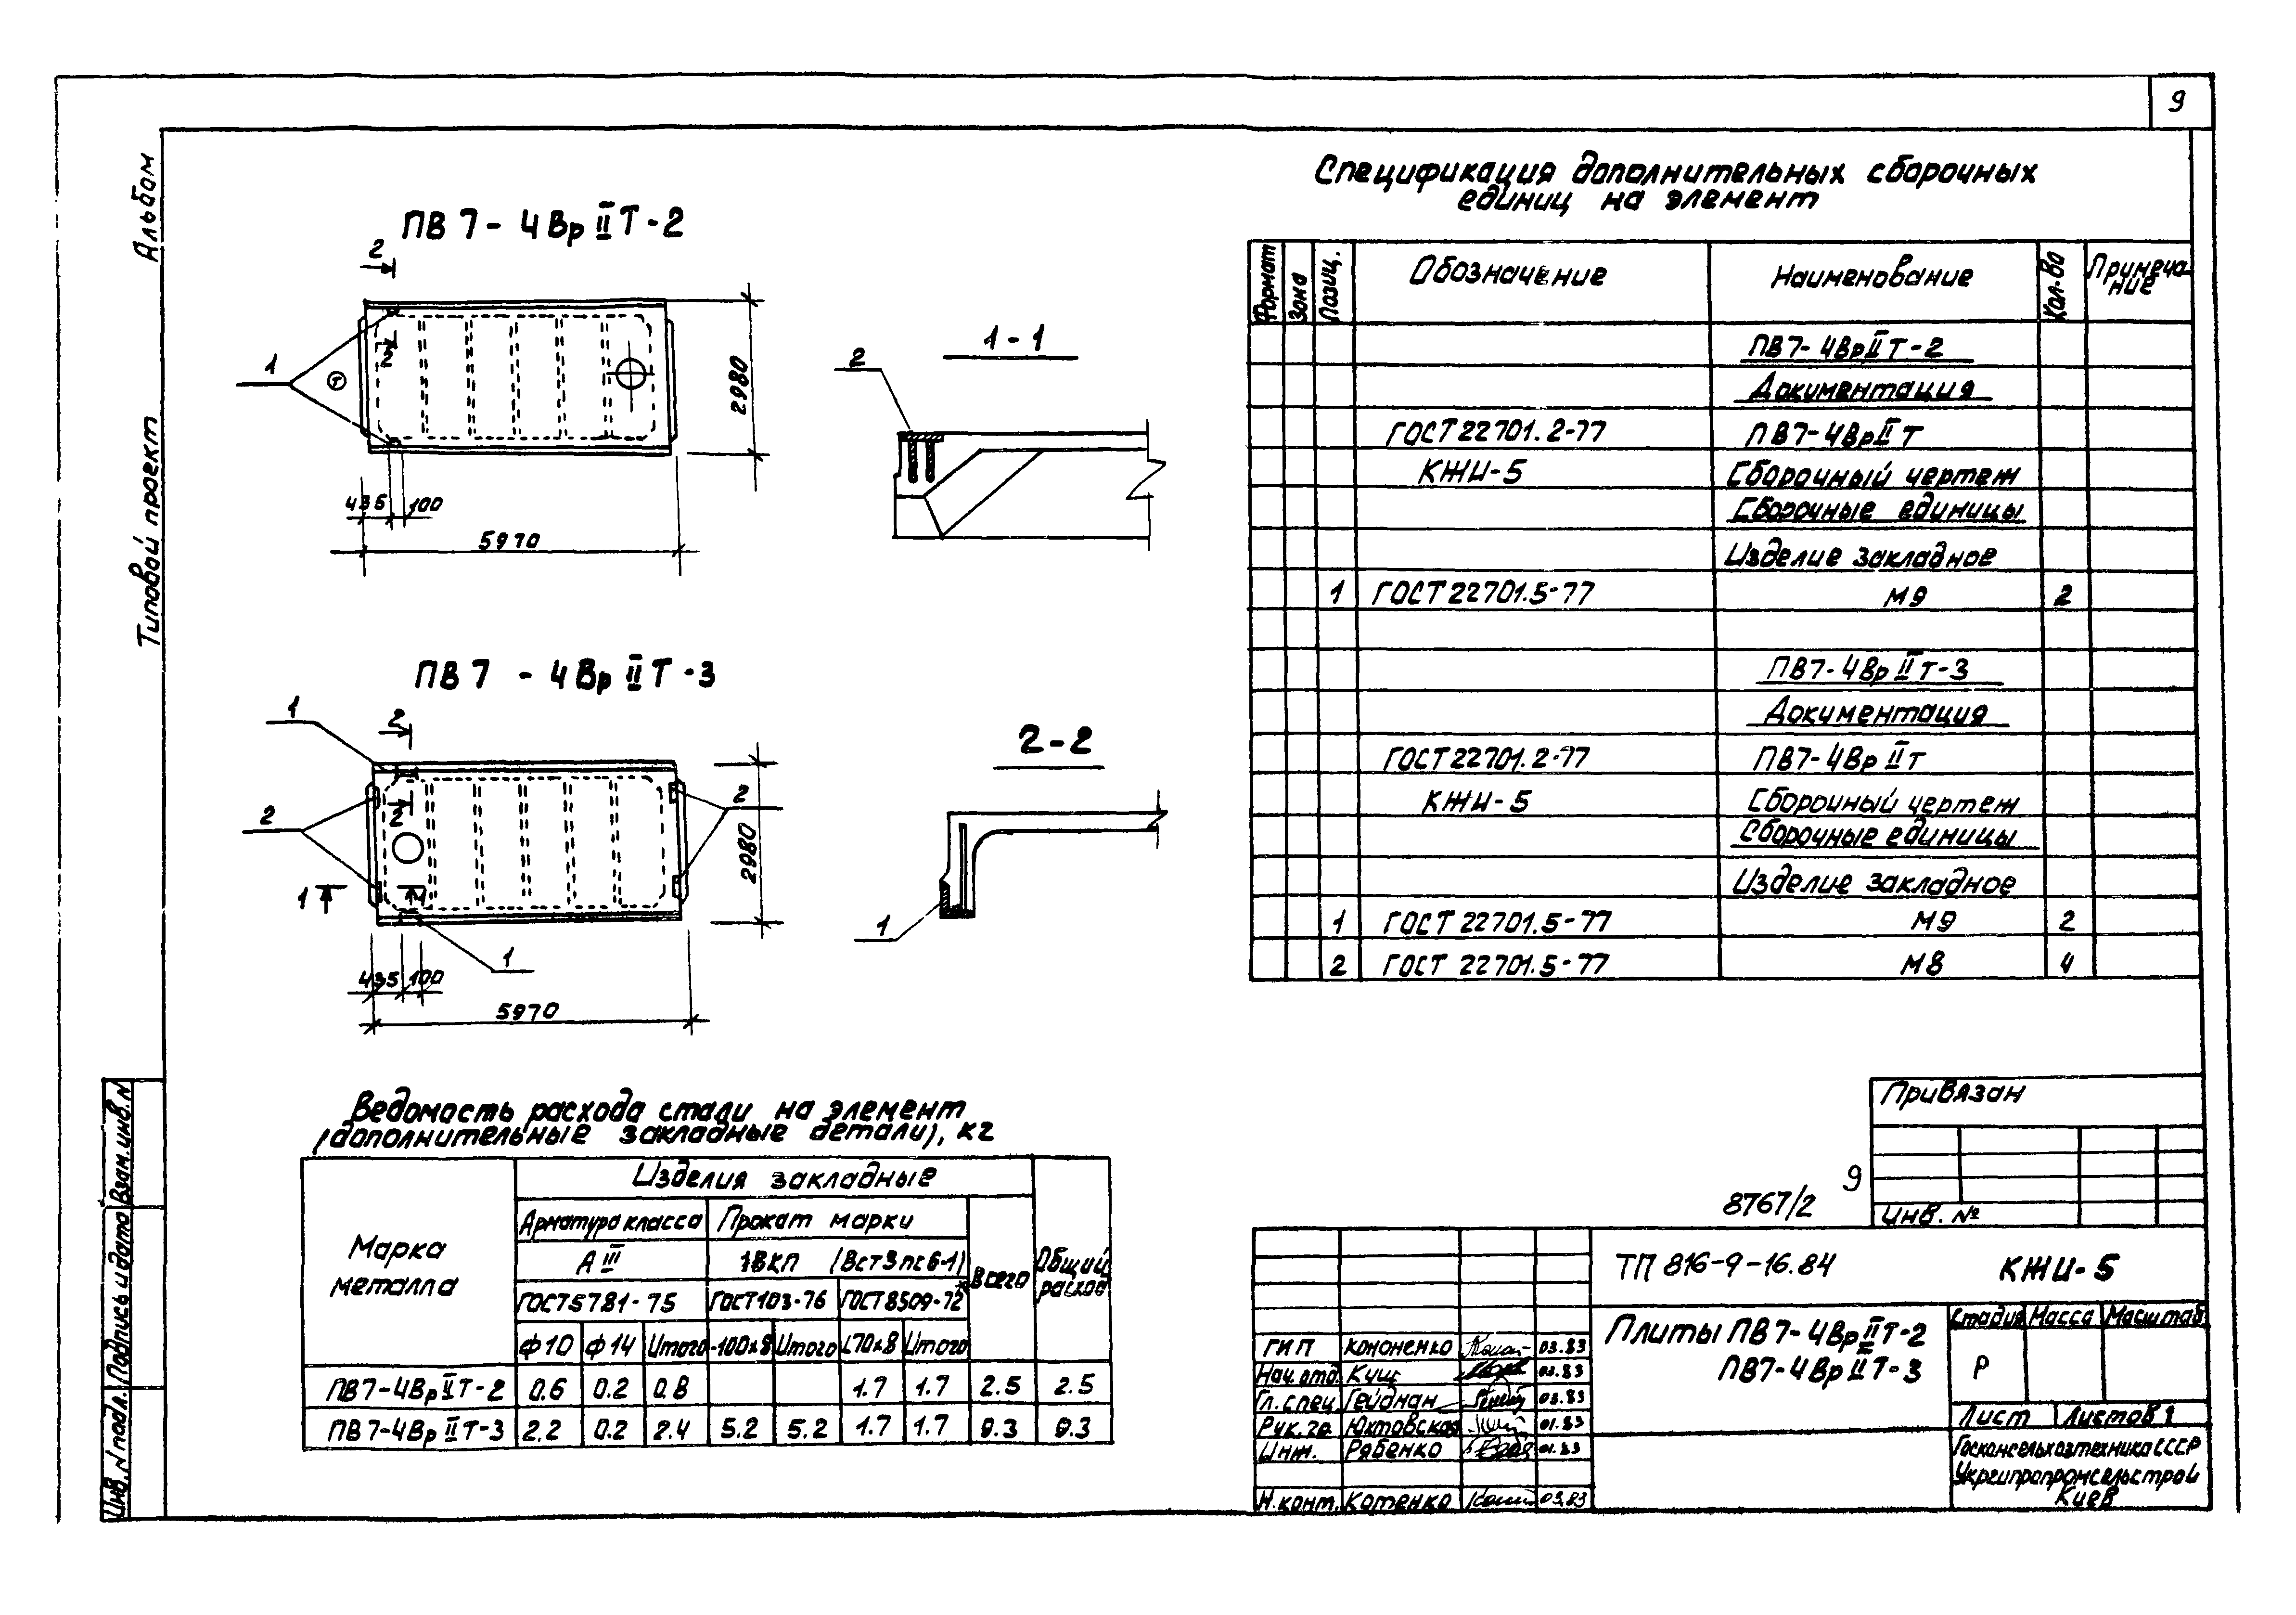 9
Альбом
Типовой проект
ПВ7-4ВрIIТ-2
2
2
1
Т
2980
435
100
5970
1-1
2
ПВ7-4ВрIIТ-3
1
2
2
2
2
1
1
1
2980
435
100
5970
2-2
1
Спецификация дополнительных сборочных
единиц на элемент
Формат
Зона
Позиц.
Обозначение
Наименование
Кол-во
Примеча
ние
ПВ7-4ВрIIТ-2
Документация
ГОСТ 22701.2-77 ПВ7-4ВрIIТ
КЖИ-5 Сборочный чертеж
Сборочные единицы
Изделие закладное
1 ГОСТ 22701.5-77 М9 2
ПВ7-4ВрIIТ-3
Документация
ГОСТ 22701.2-77 ПВ7-4ВрIIТ
КЖИ-5 Сборочный чертеж
Сборочные единицы
Изделие закладное
1 ГОСТ 22701.5-77 М9 2
2 ГОСТ 22701.5-77 М8 4
Ведомость расхода стали на элемент
(дополнительные закладные детали), кг
Марка
металла
Изделия закладные
Арматура класса
Прокат марки
АIII
18кп (ВСт3пс6-1)
Всего
Общий
расход
ГОСТ5781-75 ГОСТ103-76 ГОСТ8509-72*
ф10 ф14 Итого -100х8 Итого L70х8 Итого
ПВ7-4ВрIIТ-2 0.6 0.2 0.8 1.7 1.7 2.5 2.5
ПВ7-4ВрIIТ-3 2.2 0.2 2.4 5.2 5.2 1.7 1.7 9.3 9.3
Привязан
Инв. №
9
8767/2
ТП 816-9-16.84
КЖИ-5
Плиты ПВ7-4ВрIIТ-2
ПВ7-4ВрIIТ-3
Стадия Масса Масштаб
Р
Лист Листов 1
Госкомсельхозтехника СССР
Укргипропромсельстрой
Киев
ГИП Кононенко 03.83
Нач.отд. Кущ 03.83
Гл.спец. Гейдман 03.83
Рук.гр Юхтовская 01.83
Инж. Рябенко 01.83
Н.конт. Котенко 03.83
Инв.Nподл. Подпись и дата Взам.инв.N